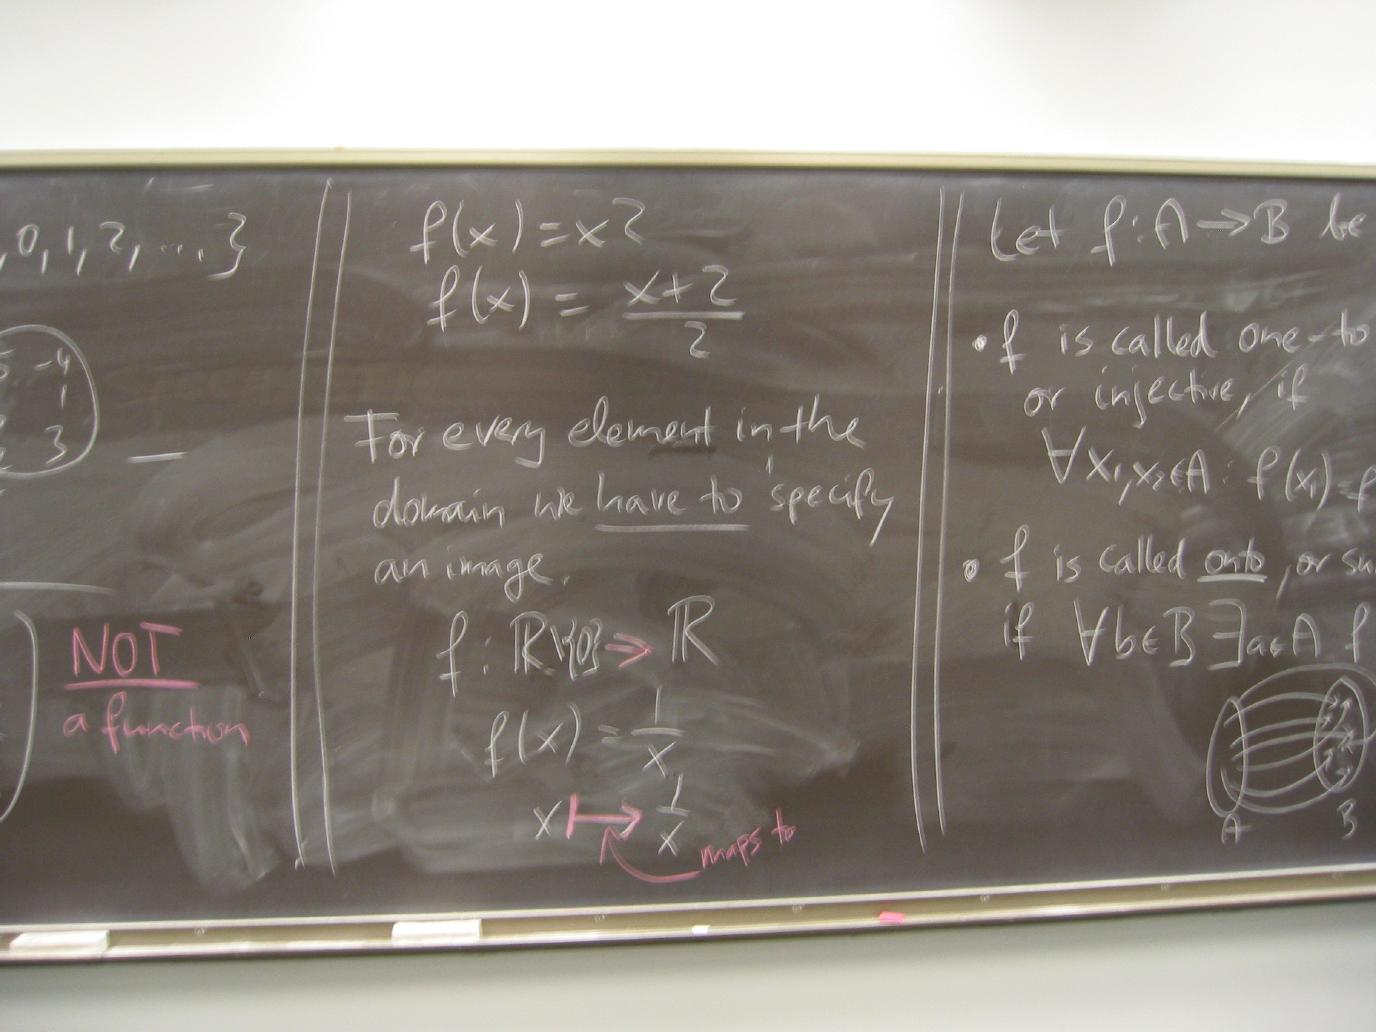 , 0, 1, 2, ..., }
-4
1
3
NOT
a function
f(x) = x2
f(x) = x+2
2
For every element in the
domain we have to specify
an image.
f : ℝ\{0} → ℝ
f(x) = 1
x
x ↦ 1
x
maps to
Let f : A → B be
• f is called one-to
or injective, if
∀ x₁, x₂ ∈ A : f(x₁) = f
• f is called onto, or su
if ∀ b ∈ B ∃ a ∈ A f
A B